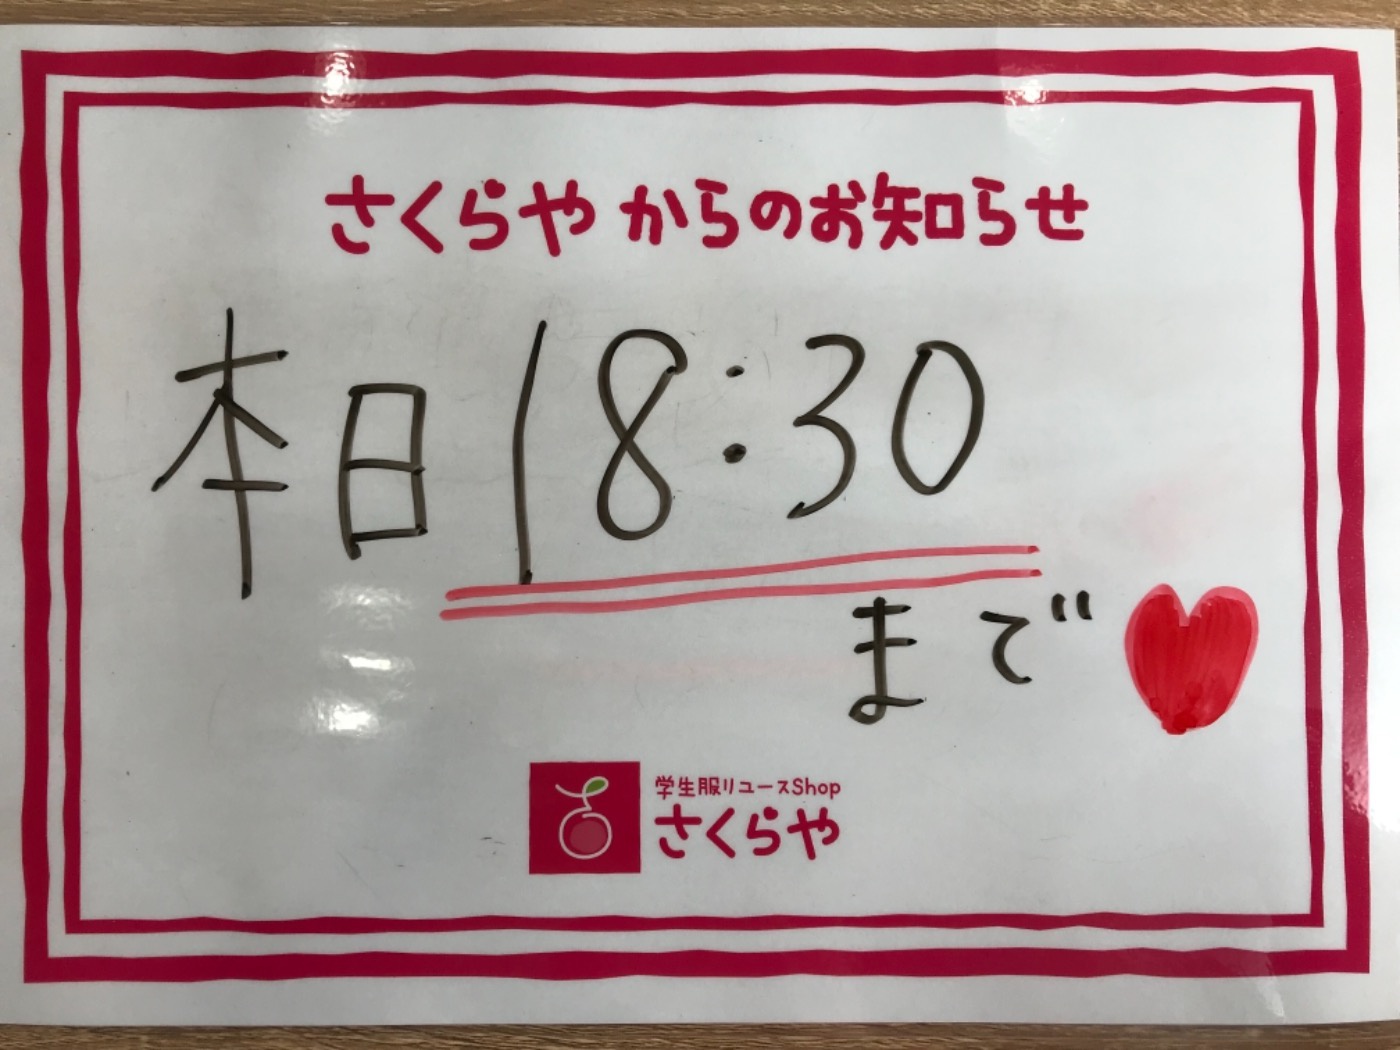 さくらや からのお知らせ
本日18:30
まで
学生服リユースShop
さくらや